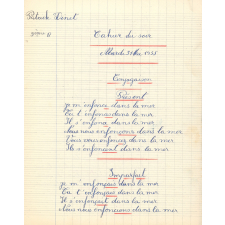 Cahier du soir
Mardi 31 Mai 1955
Conjugaison
Présent
je m'enfonce dans la mer
Tu t'enfonces dans la mer
Il s'enfonce dans la mer
Nous nous enfonçons dans la mer
Vous vous enfoncez dans la mer
Ils s'enfoncent dans la mer
Imparfait
je m'enfonçais dans la mer
Tu t'enfonçais dans la mer
Il s'enfonçait dans la mer
Nous nous enfoncions dans la mer